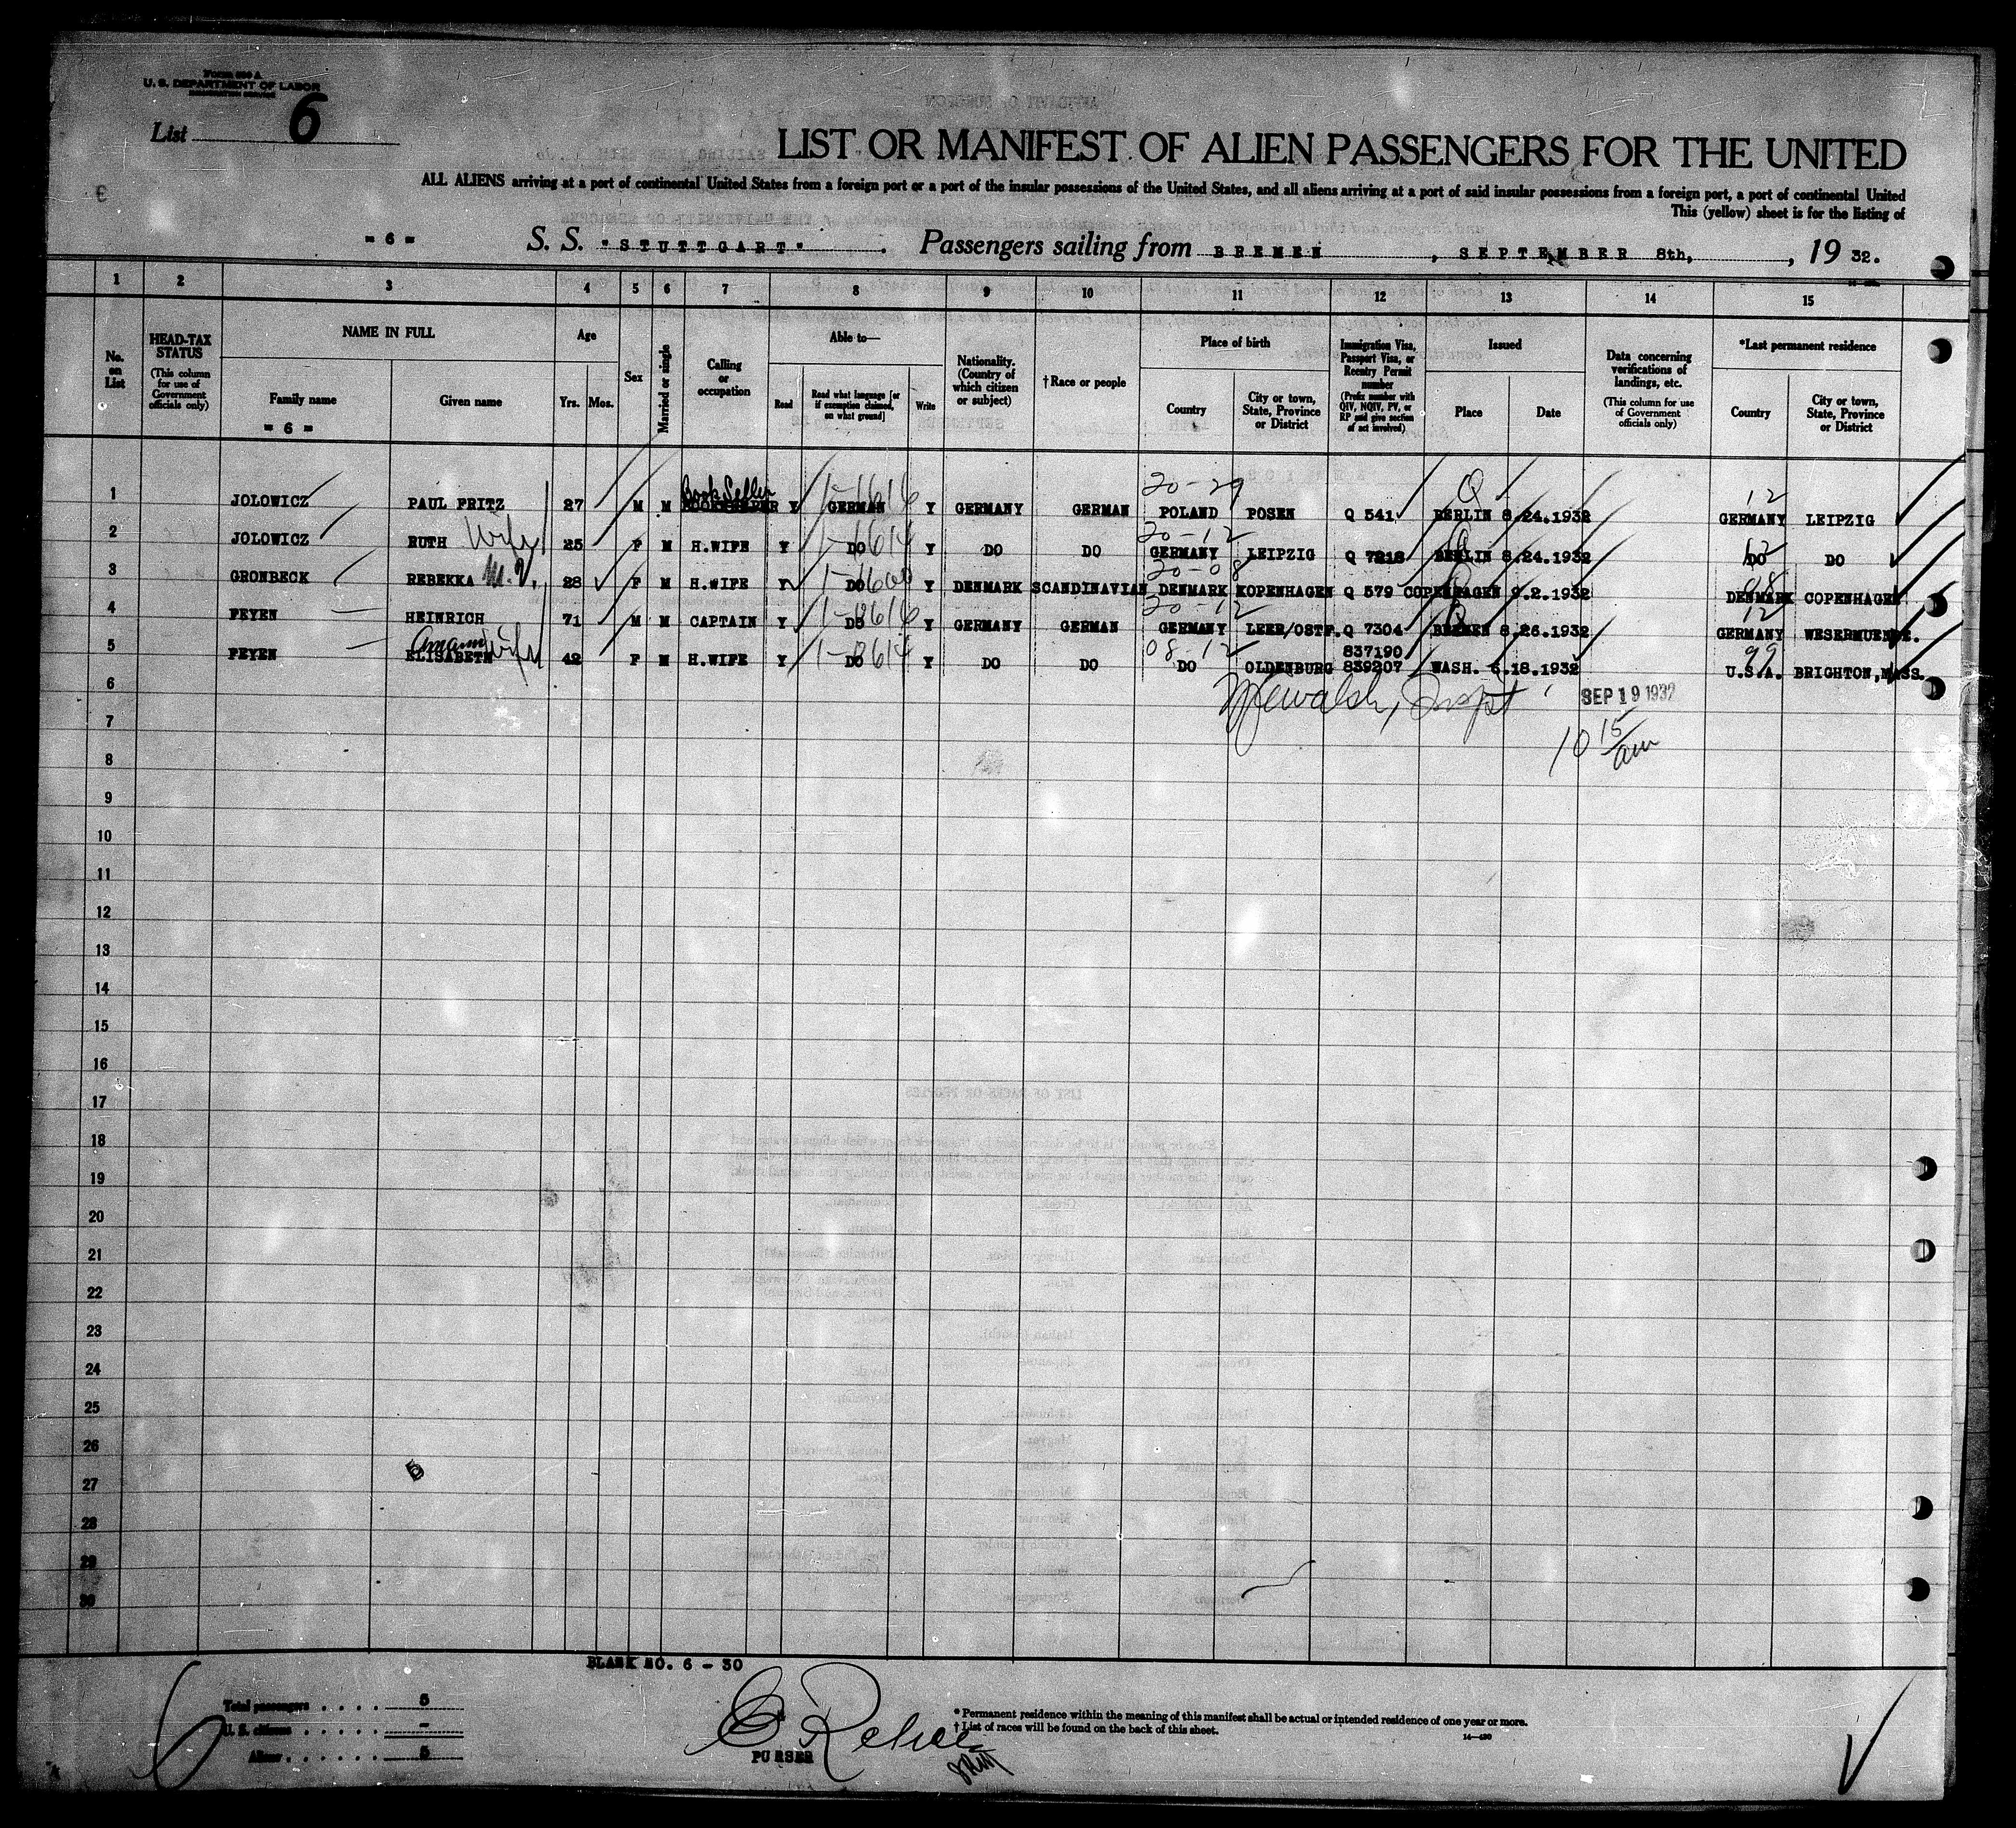 Form 500 A
U. S. DEPARTMENT OF LABOR
IMMIGRATION SERVICE
List 6
LIST OR MANIFEST OF ALIEN PASSENGERS FOR THE UNITED
ALL ALIENS arriving at a port of continental United States from a foreign port or a port of the insular possessions of the United States, and all aliens arriving at a port of said insular possessions from a foreign port, a port of continental United
This (yellow) sheet is for the listing of
= 6 = S. S. "STUTTGART". Passengers sailing from BREMEN, SEPTEMBER 8th, , 19 32.
1 2 3 4 5 6 7 8 9 10 11 12 13 14 15
No. on List
HEAD-TAX STATUS (This column for use of Government officials only)
NAME IN FULL
Family name
Given name
= 6 =
Age
Yrs. Mos.
Sex
Married or single
Calling or occupation
Able to—
Read
Read what language [or if exemption claimed, on what ground]
Write
Nationality. (Country of which citizen or subject)
† Race or people
Place of birth
Country
City or town, State, Province or District
Immigration Visa, Passport Visa, or Reentry Permit number (Prefix number with QIV, NQIV, PV, or RP and give section of act involved)
Issued
Place
Date
Data concerning verifications of landings, etc. (This column for use of Government officials only)
*Last permanent residence
Country
City or town, State, Province or District
Book Seller 1-1616 20-29 Q 12
1 JOLOWICZ PAUL FRITZ 27 M M Y GERMAN Y GERMANY GERMAN POLAND POSEN Q 541 BERLIN 8.24.1932 GERMANY LEIPZIG
Wife 1-1614 20-12 12
2 JOLOWICZ RUTH 25 F M H.WIFE Y DO Y DO DO GERMANY LEIPZIG Q 7218 BERLIN 8.24.1932 DO DO
20-08 08
3 GRONBECK REBEKKA 28 F M H.WIFE Y DO Y DENMARK SCANDINAVIAN DENMARK KOPENHAGEN Q 579 COPENHAGEN 9.2.1932 DENMARK COPENHAGEN
20-12 12
4 FEYEN HEINRICH 71 M M CAPTAIN Y DO Y GERMANY GERMAN GERMANY LEER/OSTF. Q 7304 BREMEN 8.26.1932 GERMANY WESERMUENDE.
Wife 08-12 837190 99
5 FEYEN ELISABETH 42 F M H.WIFE Y DO Y DO DO DO OLDENBURG 839207 WASH. 6.18.1932 U.S.A. BRIGHTON, MASS.
6 SEP 19 1932
7 10 15 am
8
9
10
11
12
13
14
15
16
17
18
19
20
21
22
23
24
25
26
27
28
29
30
BLANK NO. 6 - 30
Total passengers . . . . . 5
U. S. citizens . . . . . -
Aliens . . . . . . 5
PURSER
* Permanent residence within the meaning of this manifest shall be actual or intended residence of one year or more.
† List of races will be found on the back of this sheet.
14—420